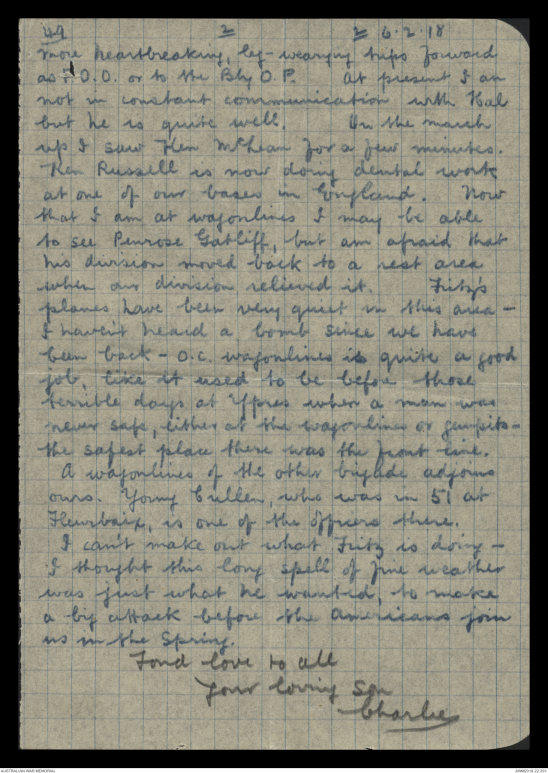 49 2 2 6.2.18
more heartbreaking, leg-wearying trips forward
as F.O.O. or to the Bty O.P. At present I am
not in constant communication with Hal
but he is quite well. On the march
up I saw Ken McLean for a few minutes.
Ken Russell is now doing dental work
at one of our bases in England. Now
that I am at wagonlines I may be able
to see Penrose Gatliff, but am afraid that
his division moved back to a rest area
when our division relieved it. Fritz's
planes have been very quiet in this area –
I haven't heard a bomb since we have
been back – O.C. wagonlines is quite a good
job, like it used to be before those
terrible days at Ypres when a man was
never safe, either at the wagonlines or gunpits –
the safest place there was the front line.
A wagonlines of the other brigade adjoins
ours. Young Cullen, who was in 51 at
Fleurbaix, is one of the officers there.
I can't make out what Fritz is doing –
I thought this long spell of fine weather
was just what he wanted, to make
a big attack before the Americans join
us in the Spring.
Fond love to all
Your loving son
Charlie
AUSTRALIAN WAR MEMORIAL